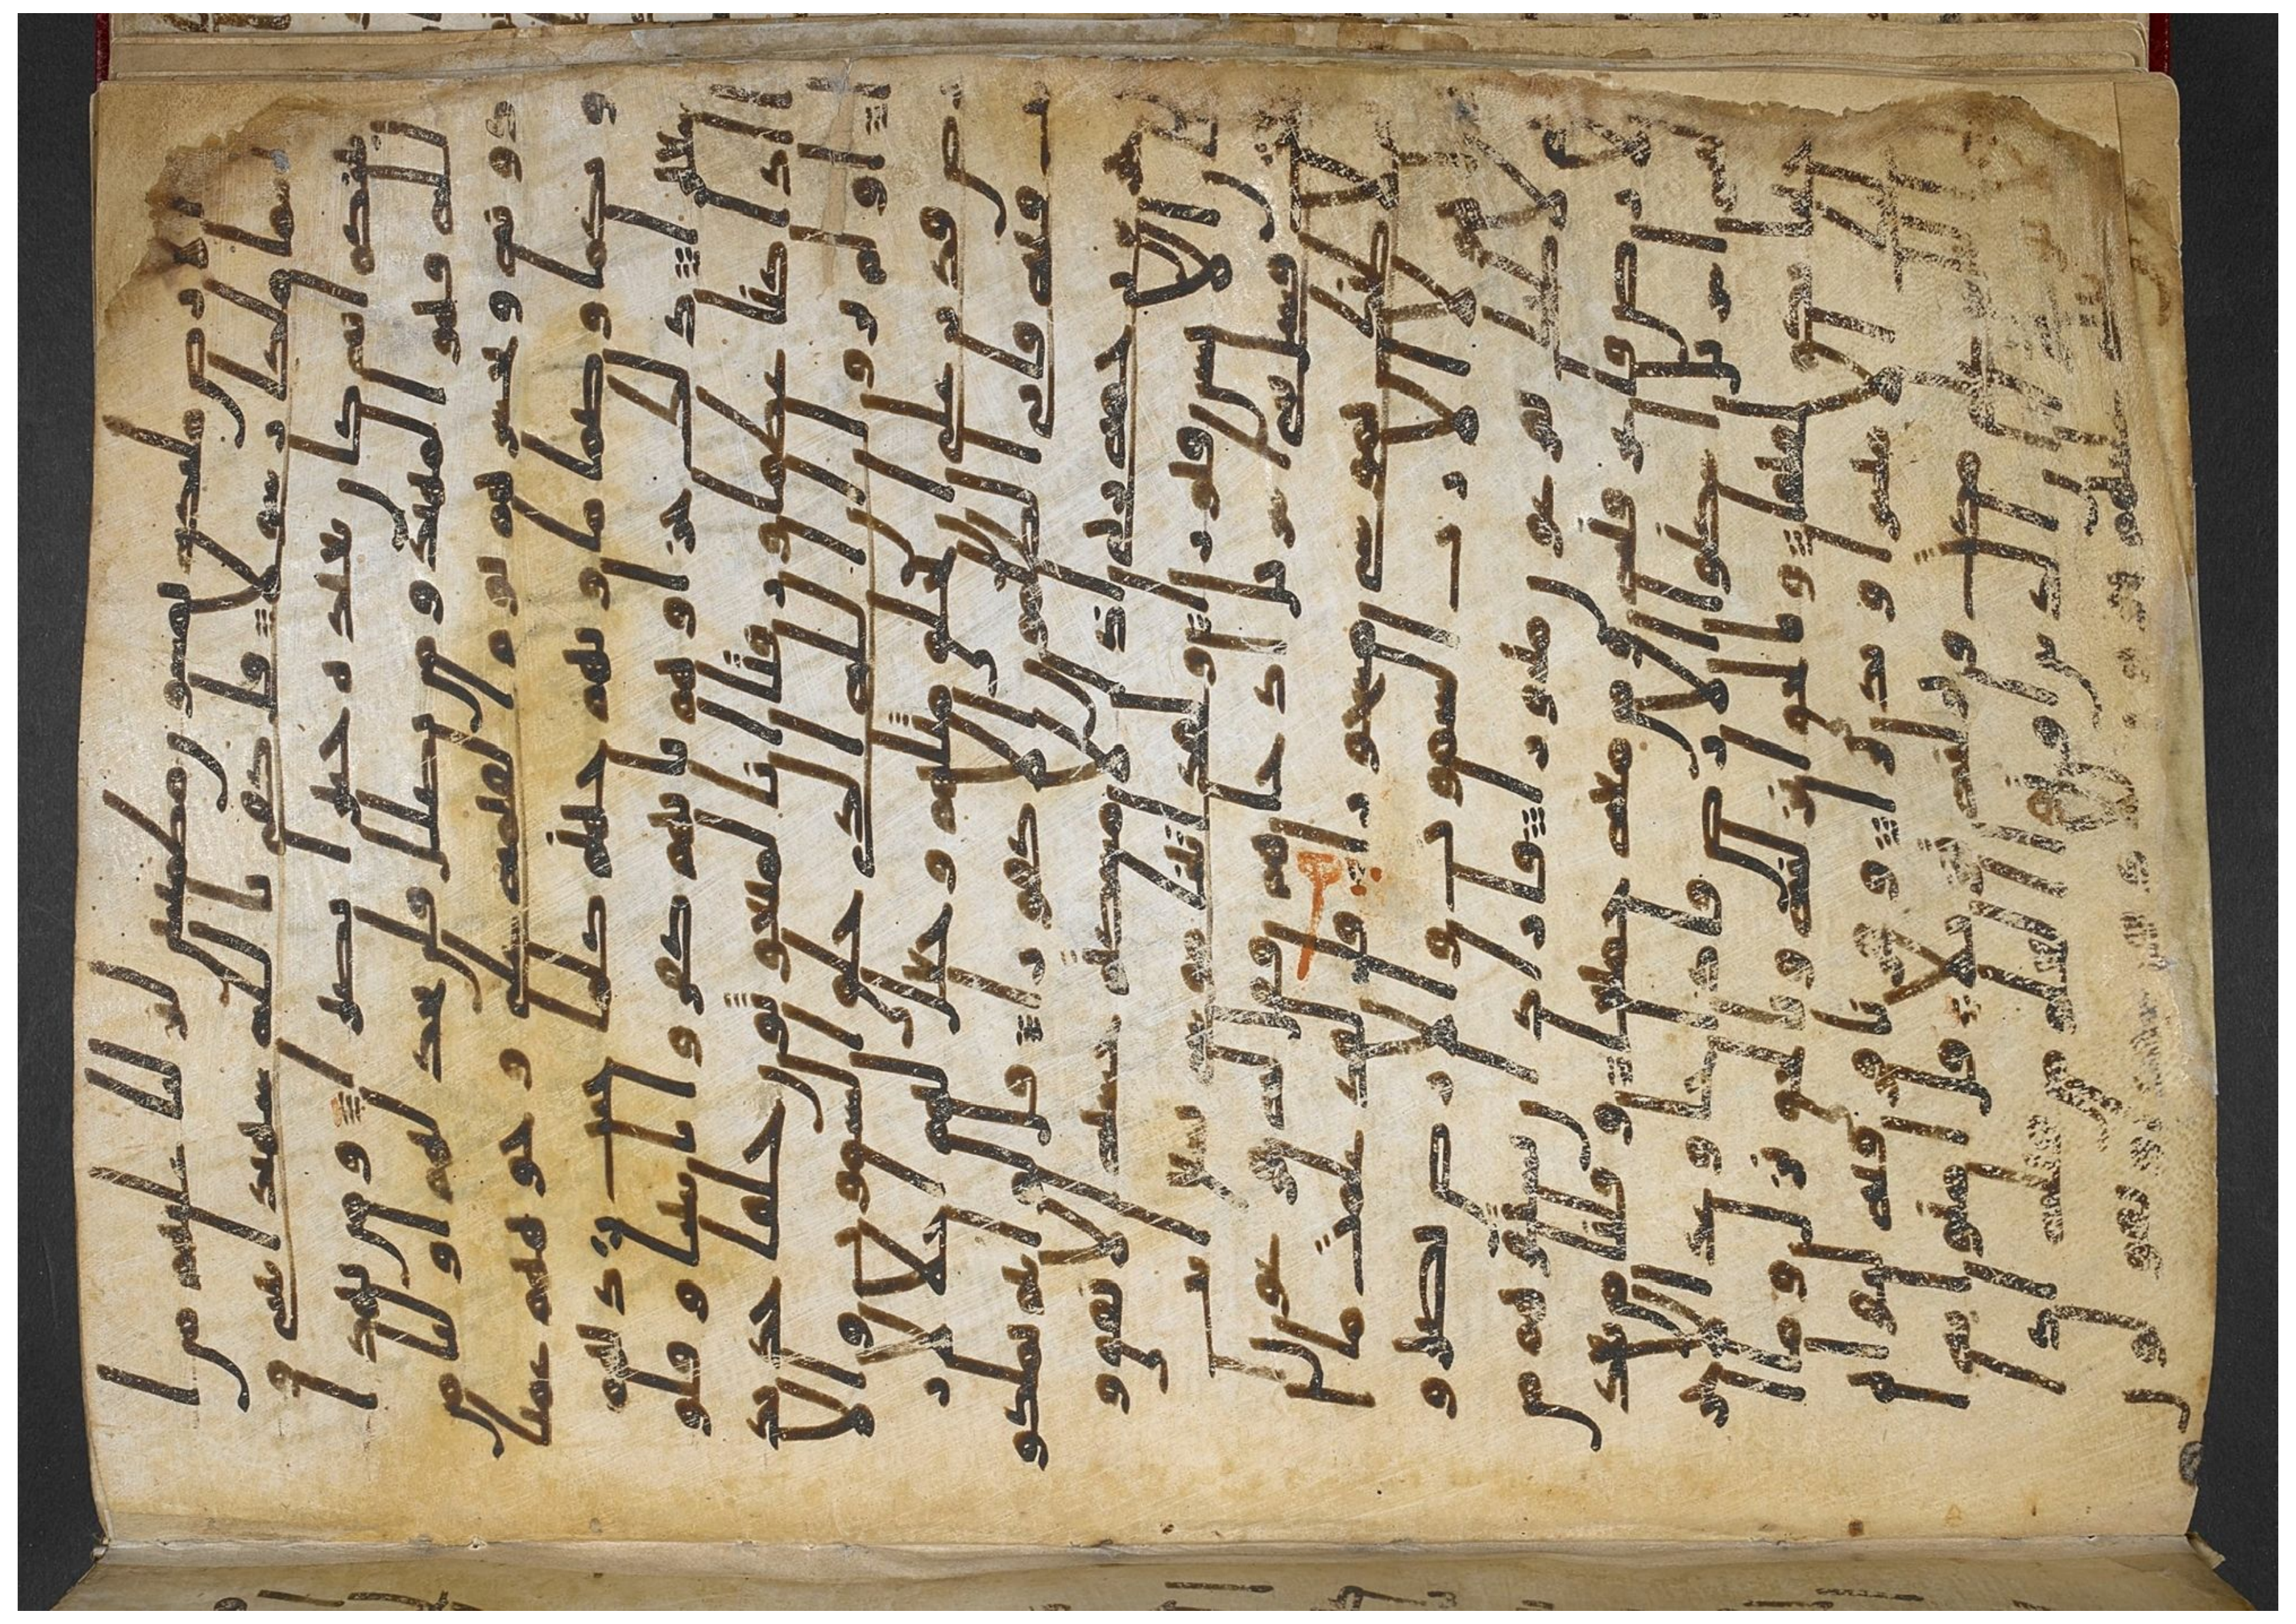 ارض ملىكه يمشون مطمىنين لنزلنا عليهم من ا
لسما ملكا رسولا قل كفى بالله شهيدا بيني و
بينكم انه كان بعباده خبيرا بصيرا و من يهد ا
لله فهو المهتد و من يضلل فلن تجد لهم اوليا من
دونه و نحشرهم يوم القيمه على وجوههم عميا
و بكما و صما ماويهم جهنم كلما خبت زدنهم
سعيرا ذلك جزاوهم بانهم كفروا بايتنا و قالو
ا اذا كنا عظما و رفتا انا لمبعوثون خلقا جد
يدا او لم يروا ان الله الذي خلق السموت و الا
رض قدر على ان يخلق مثلهم و جعل لهم اجلا لا ر
يب فيه فابى الظلمون الا كفورا قل لو انتم تملكو
ن خزاىن رحمه ربي اذا لامسكتم خشيه الانفق و
كان الانسن قتورا و لقد اتينا موسى تسع ايت بي
نت فسل بني اسريل اذ جاهم فقال له فرعون اني
لاظنك يموسى مسحورا قال لقد علمت ما ا
نزل هولا الا رب السموت و الارض بصىر و
اني لاظنك يفرعون مثبورا فاراد ان يستفزهم من
الارض فاغرقنه و من معه جميعا و قلنا من بعد
ه لبني اسريل اسكنوا الارض فاذا جا وعد الاخر
ه جينا بكم لفيفا و بالحق انزلنه و بالحق نزل و ما ار
سلنك الا مبشرا و نذيرا و قرانا فرقنه لتقراه
على مكث و نزلنه تنزيلا قل امنوا به ا
ان الذين اوتوا العلم من قبله اذا